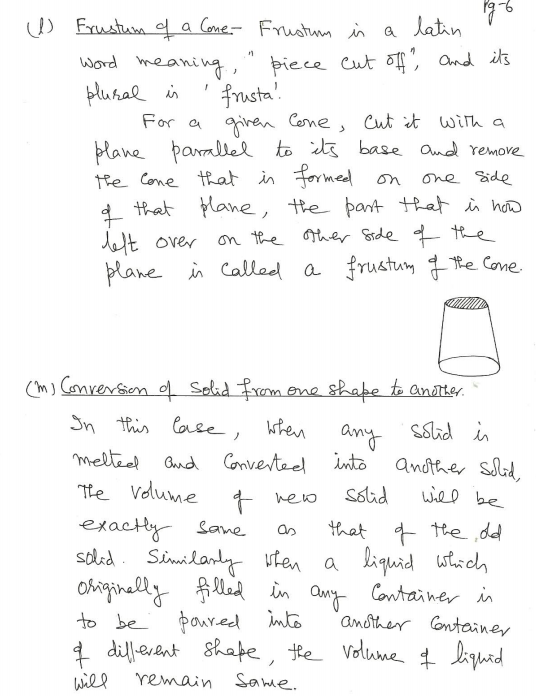 Pg-6
(l) Frustum of a Cone:- Frustum is a latin
word meaning, "piece cut off", and its
plural is 'frusta'.
For a given Cone, cut it with a
plane parallel to its base and remove
the Cone that is formed on one side
of that plane, the part that is now
left over on the other side of the
plane is called a frustum of the Cone.
(m) Conversion of Solid from one shape to another.
In this Case, when any solid is
melted and Converted into another Solid,
The volume of new Solid will be
exactly same as that of the old
solid. Similarly when a liquid which
originally filled in any Container is
to be poured into another Container
of different Shape, the volume of liquid
will remain Same.